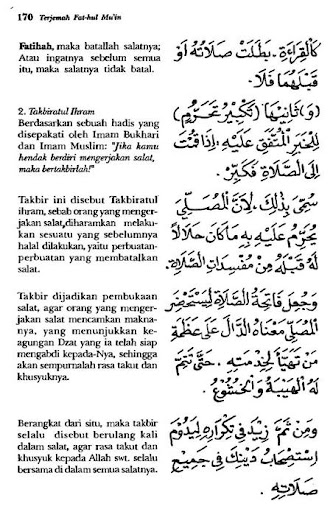 170 Terjemah Fat-hul Mu'in
Fatihah, maka batallah salatnya;
Atau ingatnya sebelum semua
itu, maka salatnya tidak batal.
كَالْقِرَاءَةِ. بَطَلَتْ صَلَاتُهُ أَوْ
قَبْلَهُمَا فَلَا.
2. Takbiratul Ihram
Berdasarkan sebuah hadis yang
disepakati oleh Imam Bukhari
dan Imam Muslim: "Jika kamu
hendak berdiri mengerjakan salat,
maka bertakbirlah!"
(وَ) ثَانِيْهَا (تَكْبِيْرُ تَحَرُّمٍ)
لِلْخَبَرِ الْمُتَّفَقِ عَلَيْهِ: إِذَا قُمْتَ
إِلَى الصَّلَاةِ فَكَبِّرْ.
Takbir ini disebut Takbiratul
ihram, sebab orang yang menger-
jakan salat,diharamkan melaku-
kan sesuatu yang sebelumnya
halal dilakukan, yaitu perbuatan-
perbuatan yang membatalkan
salat.
سُمِّيَ بِذَلِكَ. لِأَنَّ الْمُصَلِّيَ
يَحْرُمُ عَلَيْهِ بِهِ مَا كَانَ حَلَالًا
لَهُ قَبْلَهُ مِنْ مُفْسِدَاتِ الصَّلَاةِ.
Takbir dijadikan pembukaan
salat, agar orang yang menger-
jakan salat mencamkan makna-
nya, yang menunjukkan ke-
agungan Dzat yang ia telah siap
mengabdi kepada-Nya, sehingga
akan sempurnalah rasa takut dan
khusyuknya.
وَجُعِلَ فَاتِحَةُ الصَّلَاةِ لِيَسْتَحْضِرَ
الْمُصَلِّيْ مَعْنَاهُ الدَّالَّ عَلَى عَظَمَةِ
مَنْ تَهَيَّأَ لِخِدْمَتِهِ. حَتَّى تَتِمَّ
لَهُ الْهَيْبَةُ وَالْخُشُوْعُ.
Berangkat dari situ, maka takbir
selalu disebut berulang kali
dalam salat, agar rasa takut dan
khusyuk kepada Allah swt. selalu
bersama di dalam semua salatnya.
وَمِنْ ثَمَّ زِيْدَ فِيْ تَكْرَارِهِ لِيَدُوْمَ
اسْتِصْحَابُ ذَيْنِكَ فِيْ جَمِيْعِ
صَلَاتِهِ.